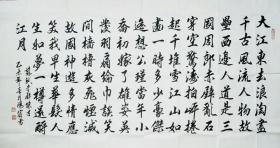 大江東去浪淘盡
千古風流人物故
壘西邊人道是三
國周郎赤壁亂石
穿空驚濤拍岸捲
起千堆雪江山如
畫一時多少豪傑
遙想公瑾當年小
喬初嫁了雄姿英
發羽扇綸巾談笑
間檣櫓灰飛煙滅
故國神遊多情應
笑我早生華髮人
生如夢一樽還酹
江月